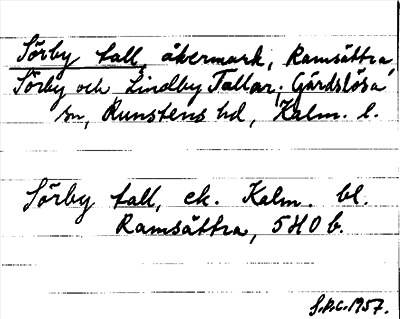 Sörby tall, åkermark, Ramsättra,
Sörby och Lindby Tallar, Gärdslösa
sn, Runstens hd, Kalm. l.
Sörby tall, ek. Kalm. bl.
Ramsättra, 5H0b.
S.P.C. 1957.